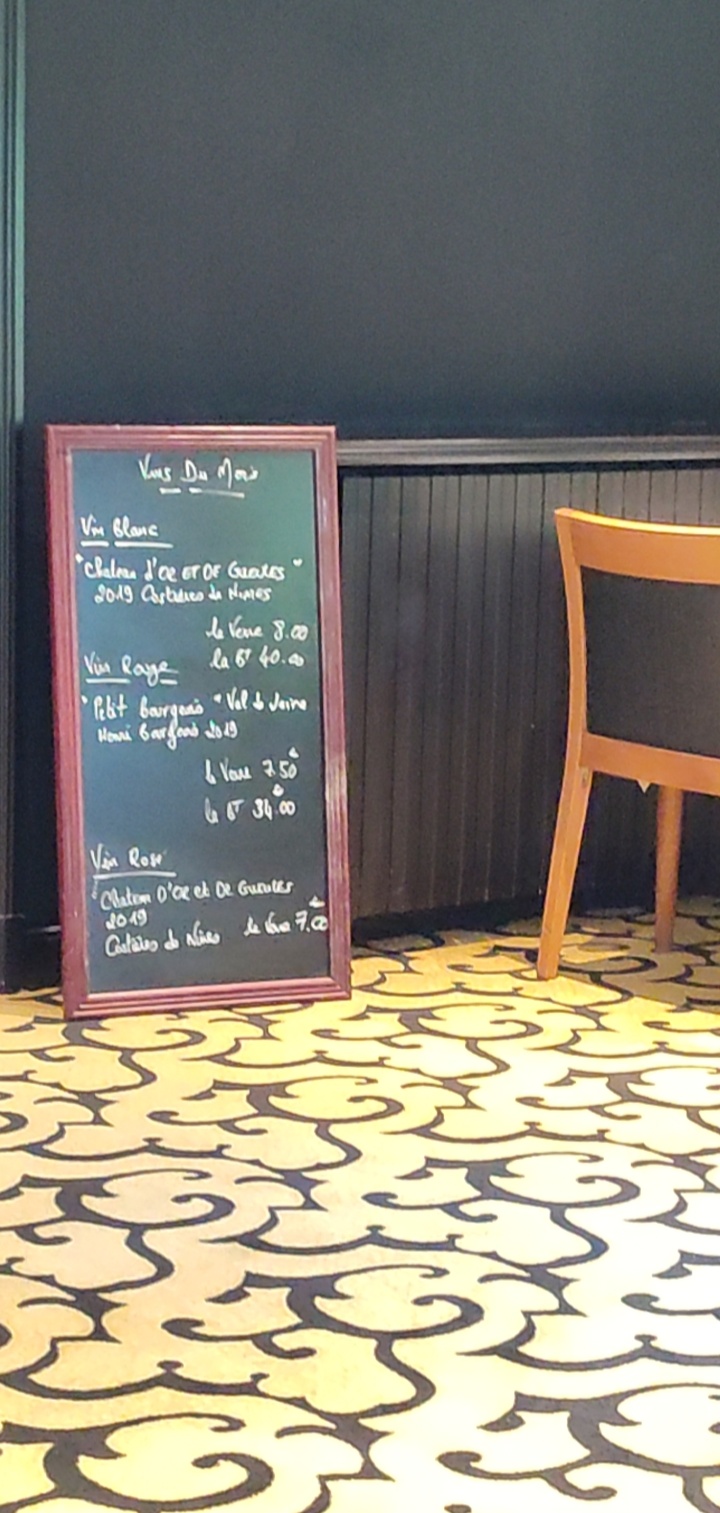 Vins Du Mois
Vin Blanc
"Chateau d'OR ET DE GUEULES"
2019 Costières de NIMES
le Verre 8.00
la BT 40.00
Vin Rouge
"Petit Bourgeois" Val de Loire
Henri Bourgeois 2019
le Verre 7.50
la BT 34.00
Vin Rosé
"Chateau D'OR et DE GUEULES
2019
Costières de Nîmes le Verre 7.00